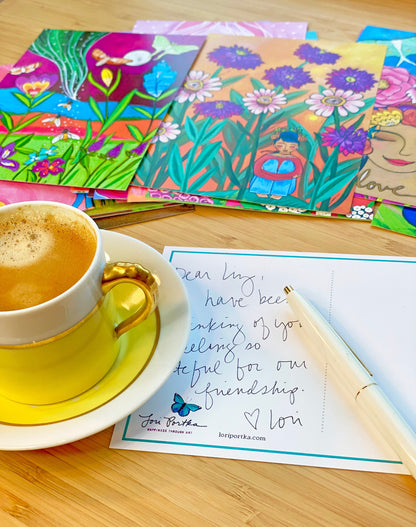 Dear Liz,
have been
nking of you
eeling so
teful for our
friendship.
♡ Lori
Lori Portka
HAPPINESS THROUGH ART
loriportka.com
love